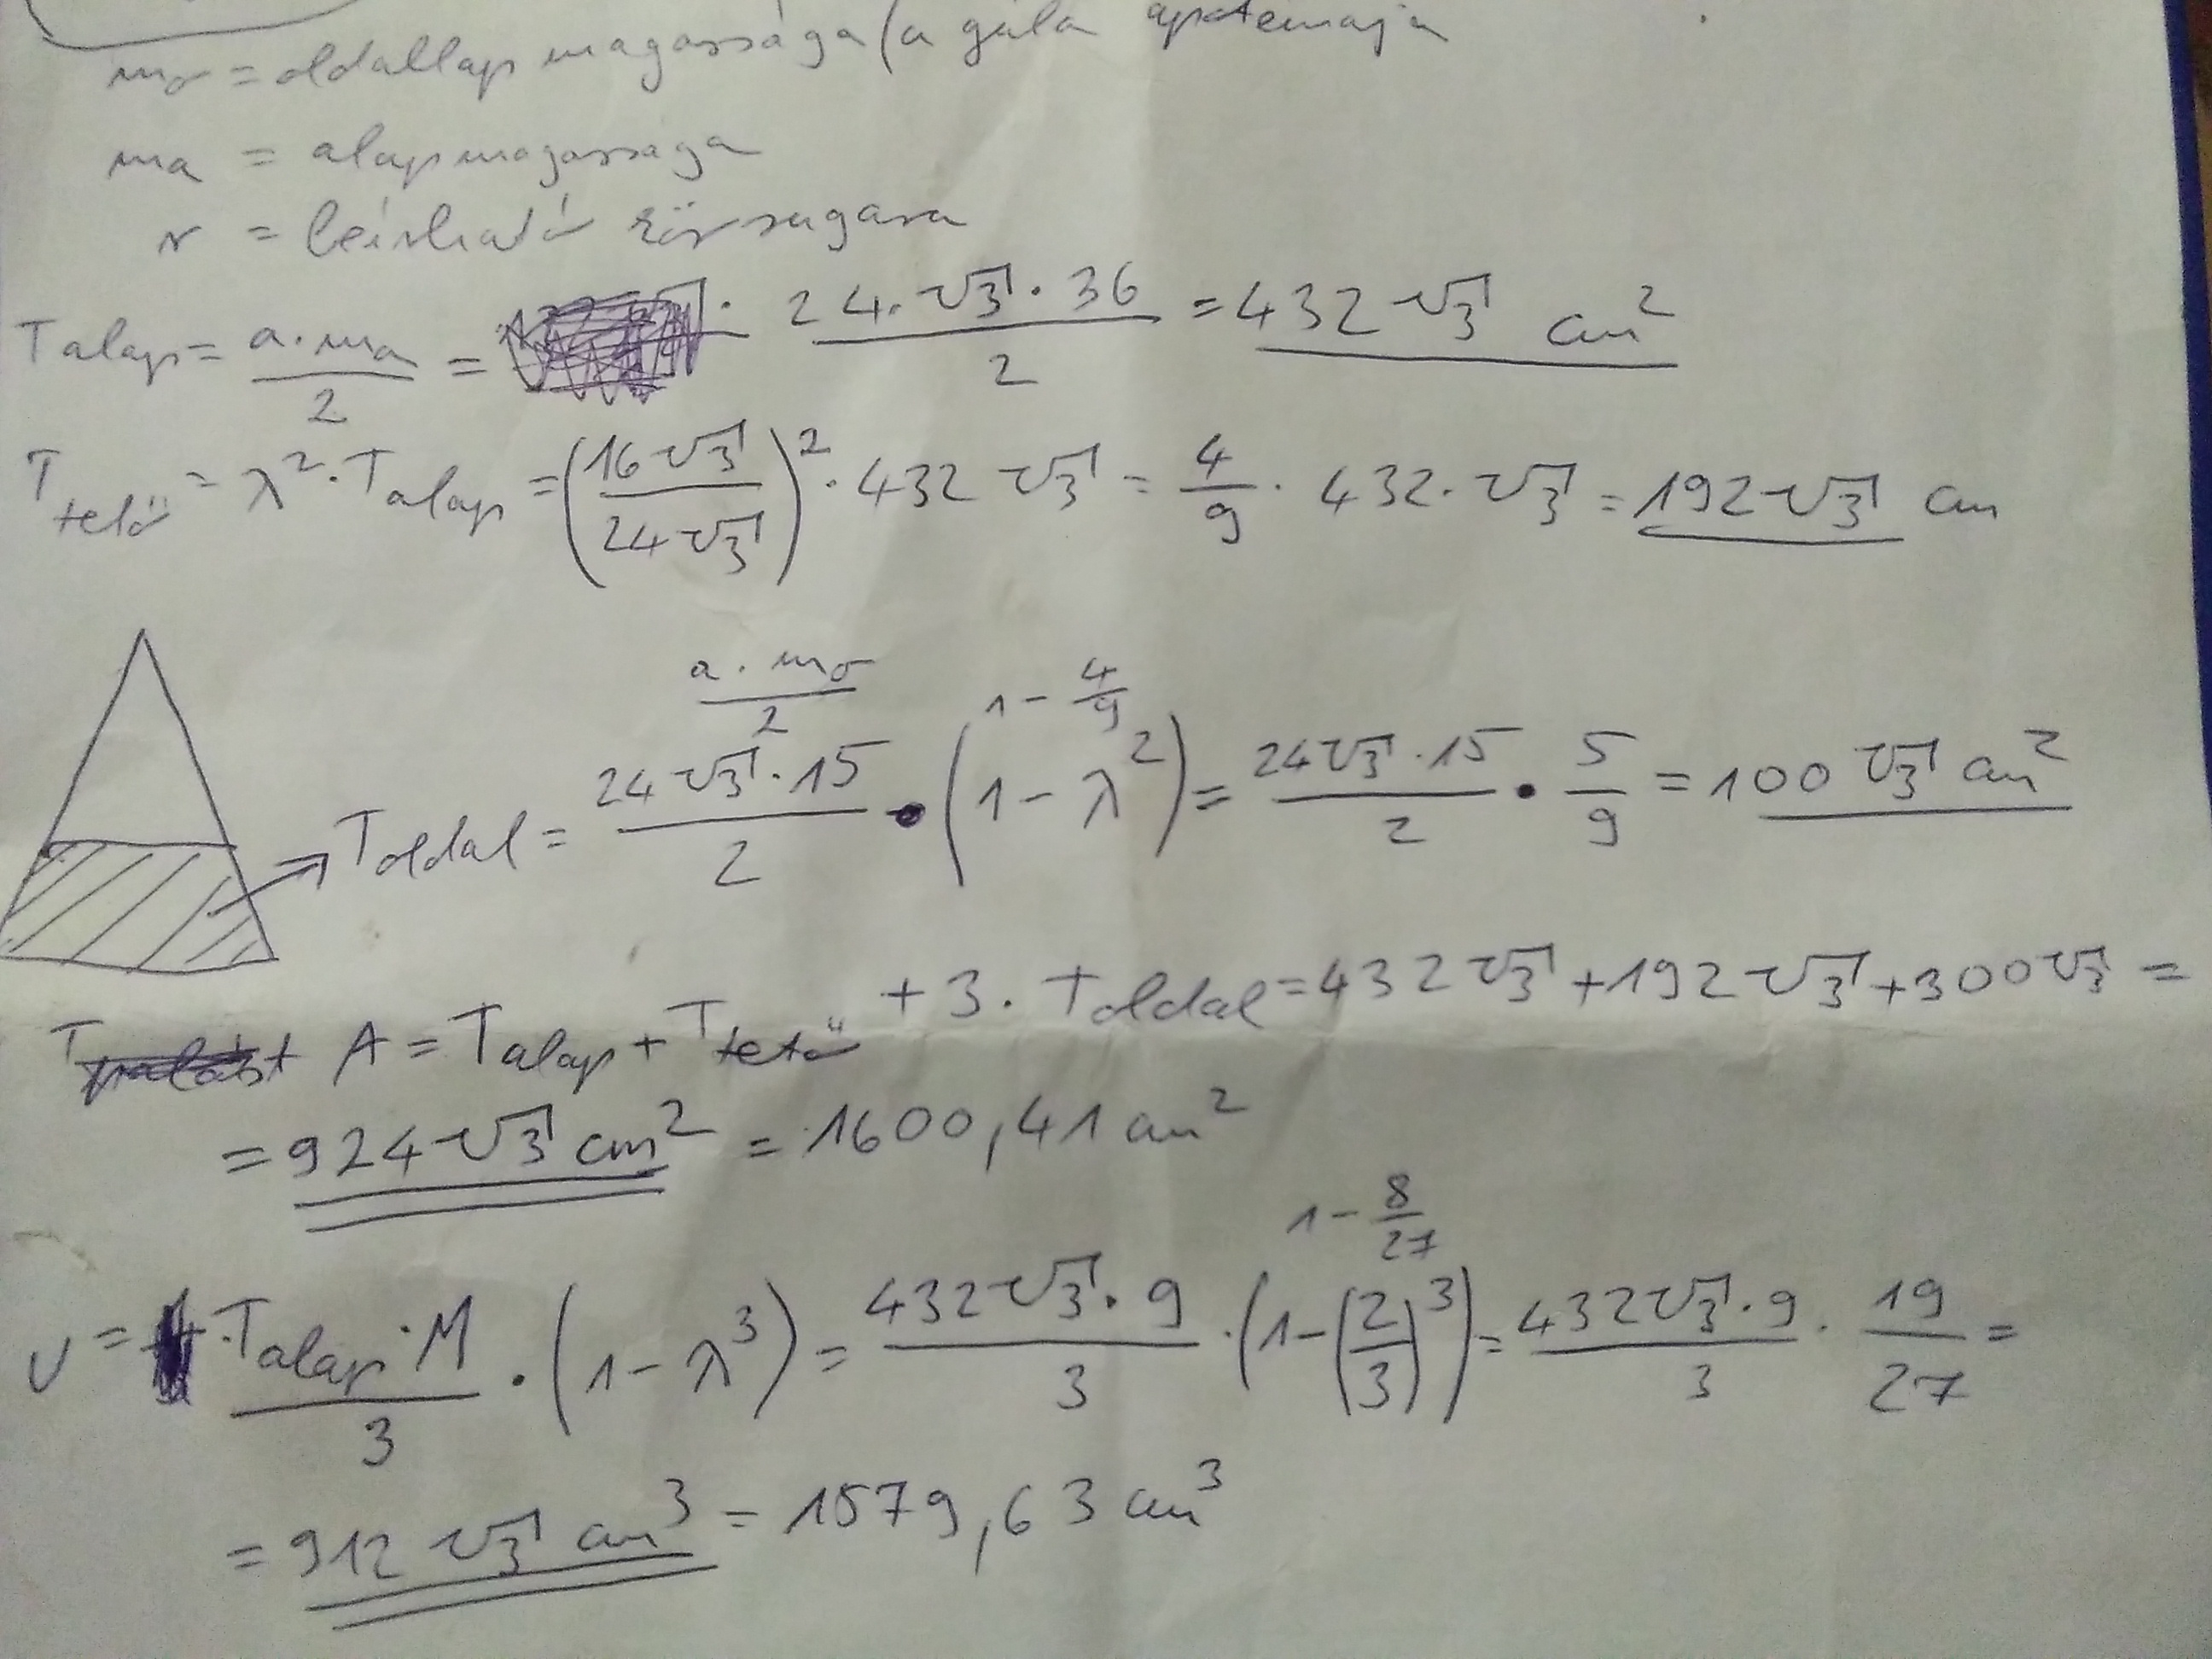 mo = oldallap magassága (a gúla apotemaja
ma = alapmagassaga
r = beírható kör sugara
Talap = a·ma/2 = 24·√3·36/2 = 432√3 cm²
Ttető = λ²·Talap = (16√3/24√3)²·432√3 = 4/9·432·√3 = 192√3 cm
a·mo/2
1-4/9
Toldal = 24√3·15/2·(1-λ²) = 24√3·15/2·5/9 = 100√3 cm²
A = Talap + Ttető + 3·Toldal = 432√3 + 192√3 + 300√3 =
= 924√3 cm² = 1600,41 cm²
1-8/27
V = Talap·M/3·(1-λ³) = 432√3·9/3·(1-(2/3)³) = 432√3·9/3·19/27 =
= 912√3 cm³ = 1579,63 cm³